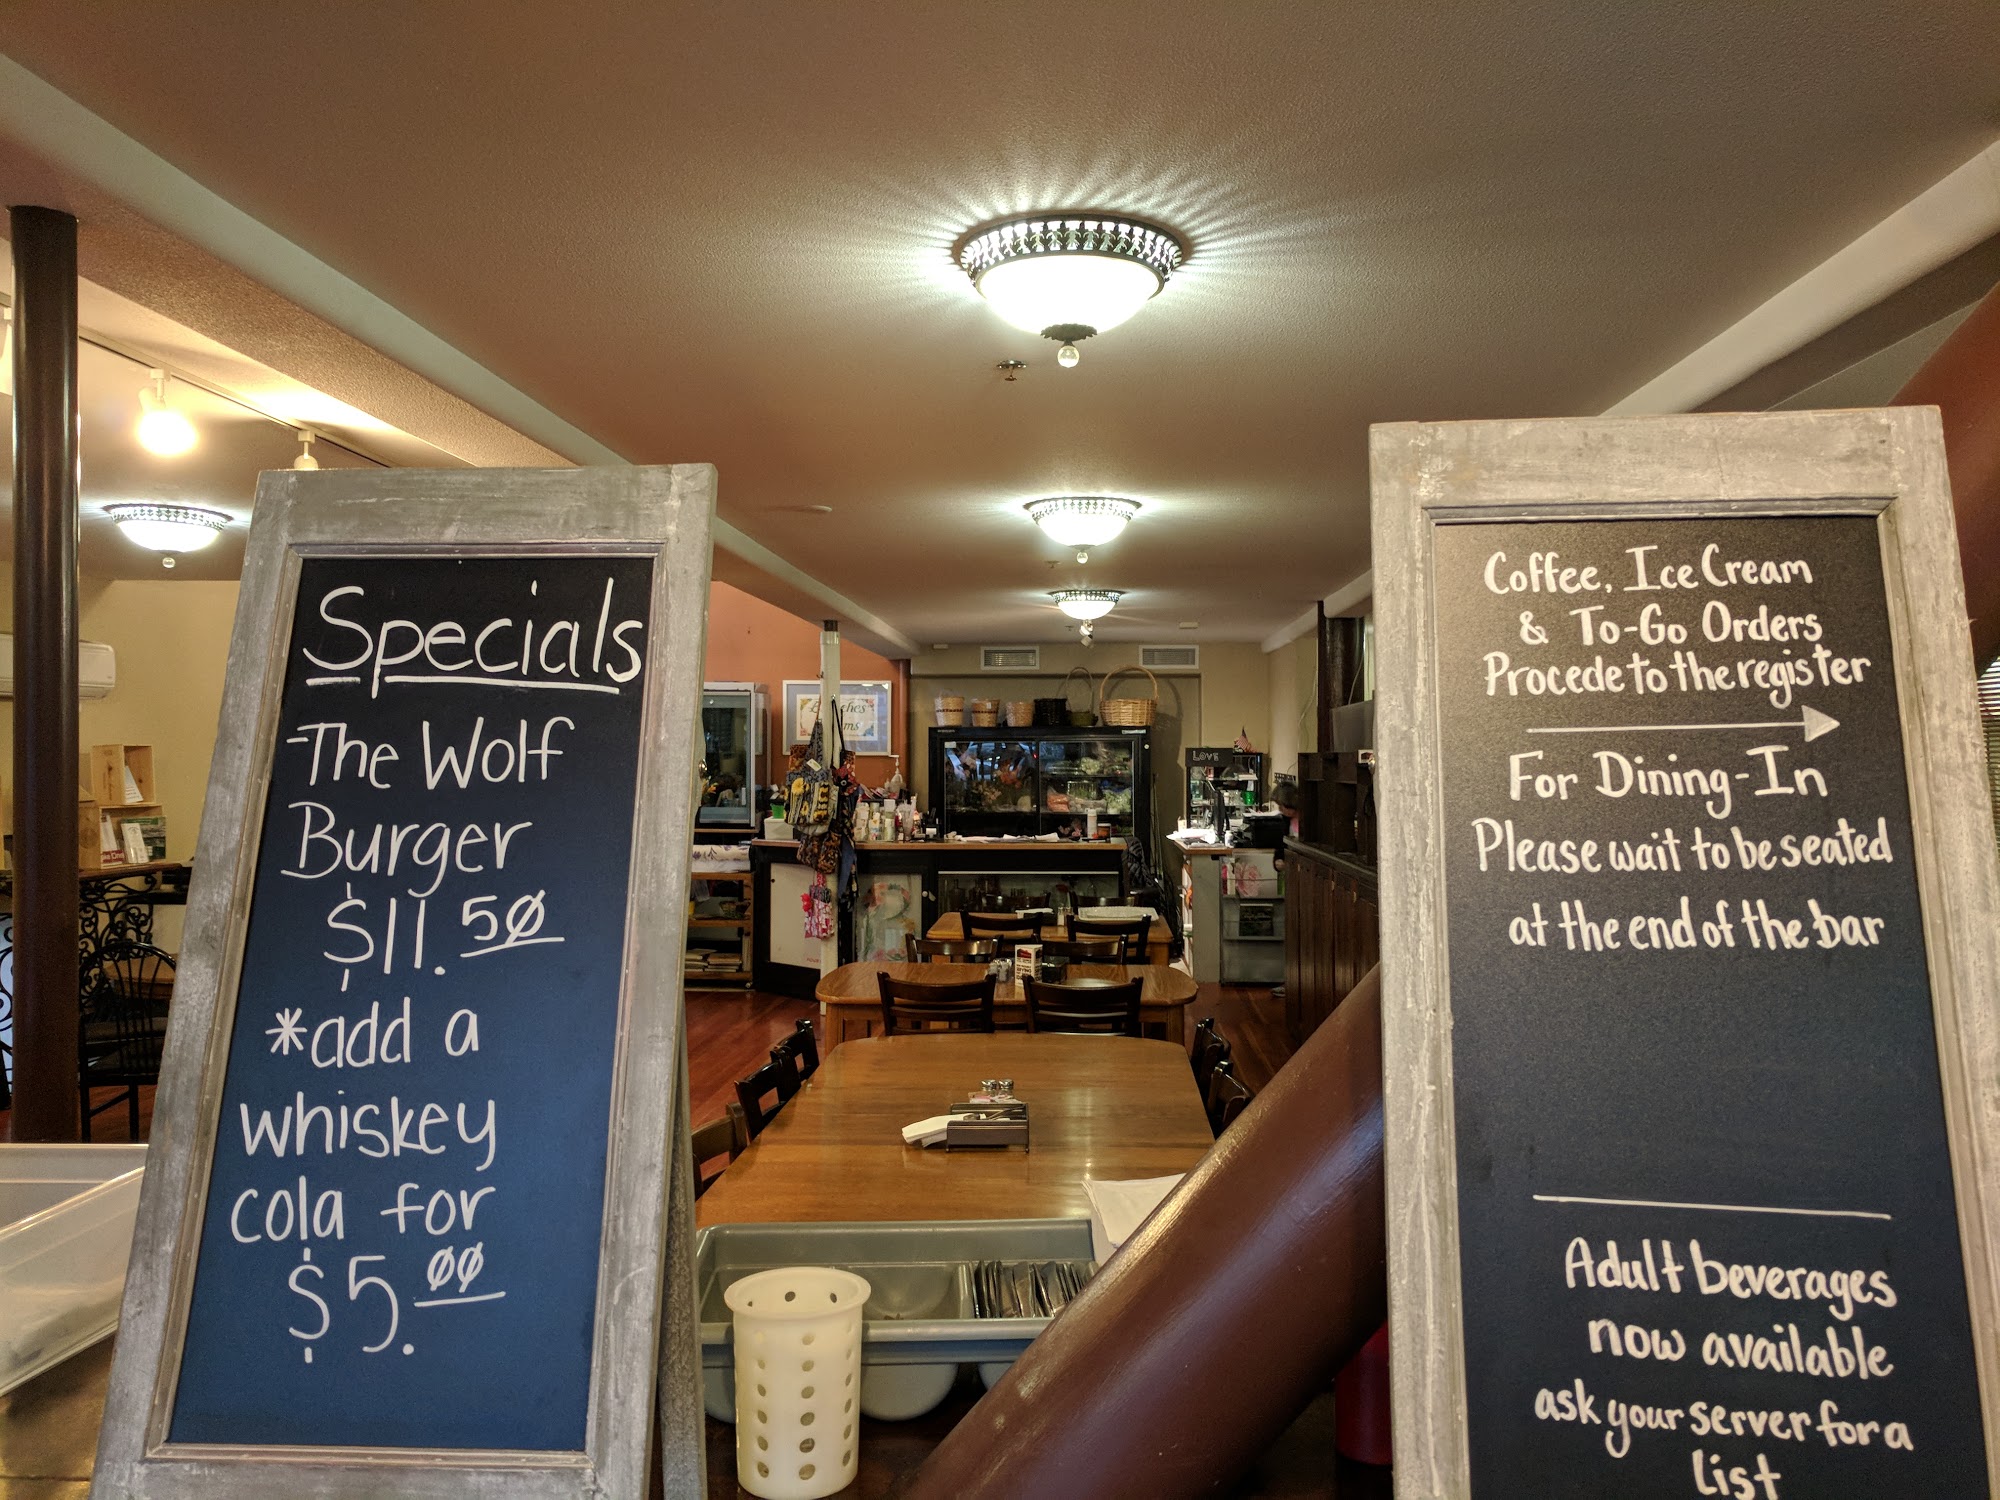 Specials
-The Wolf
Burger
$11.50
*add a
whiskey
cola for
$5.00
LOVE
Coffee, Ice Cream
& To-Go Orders
Procede to the register
For Dining-In
Please wait to be seated
at the end of the bar
Adult beverages
now available
ask your server for a
list